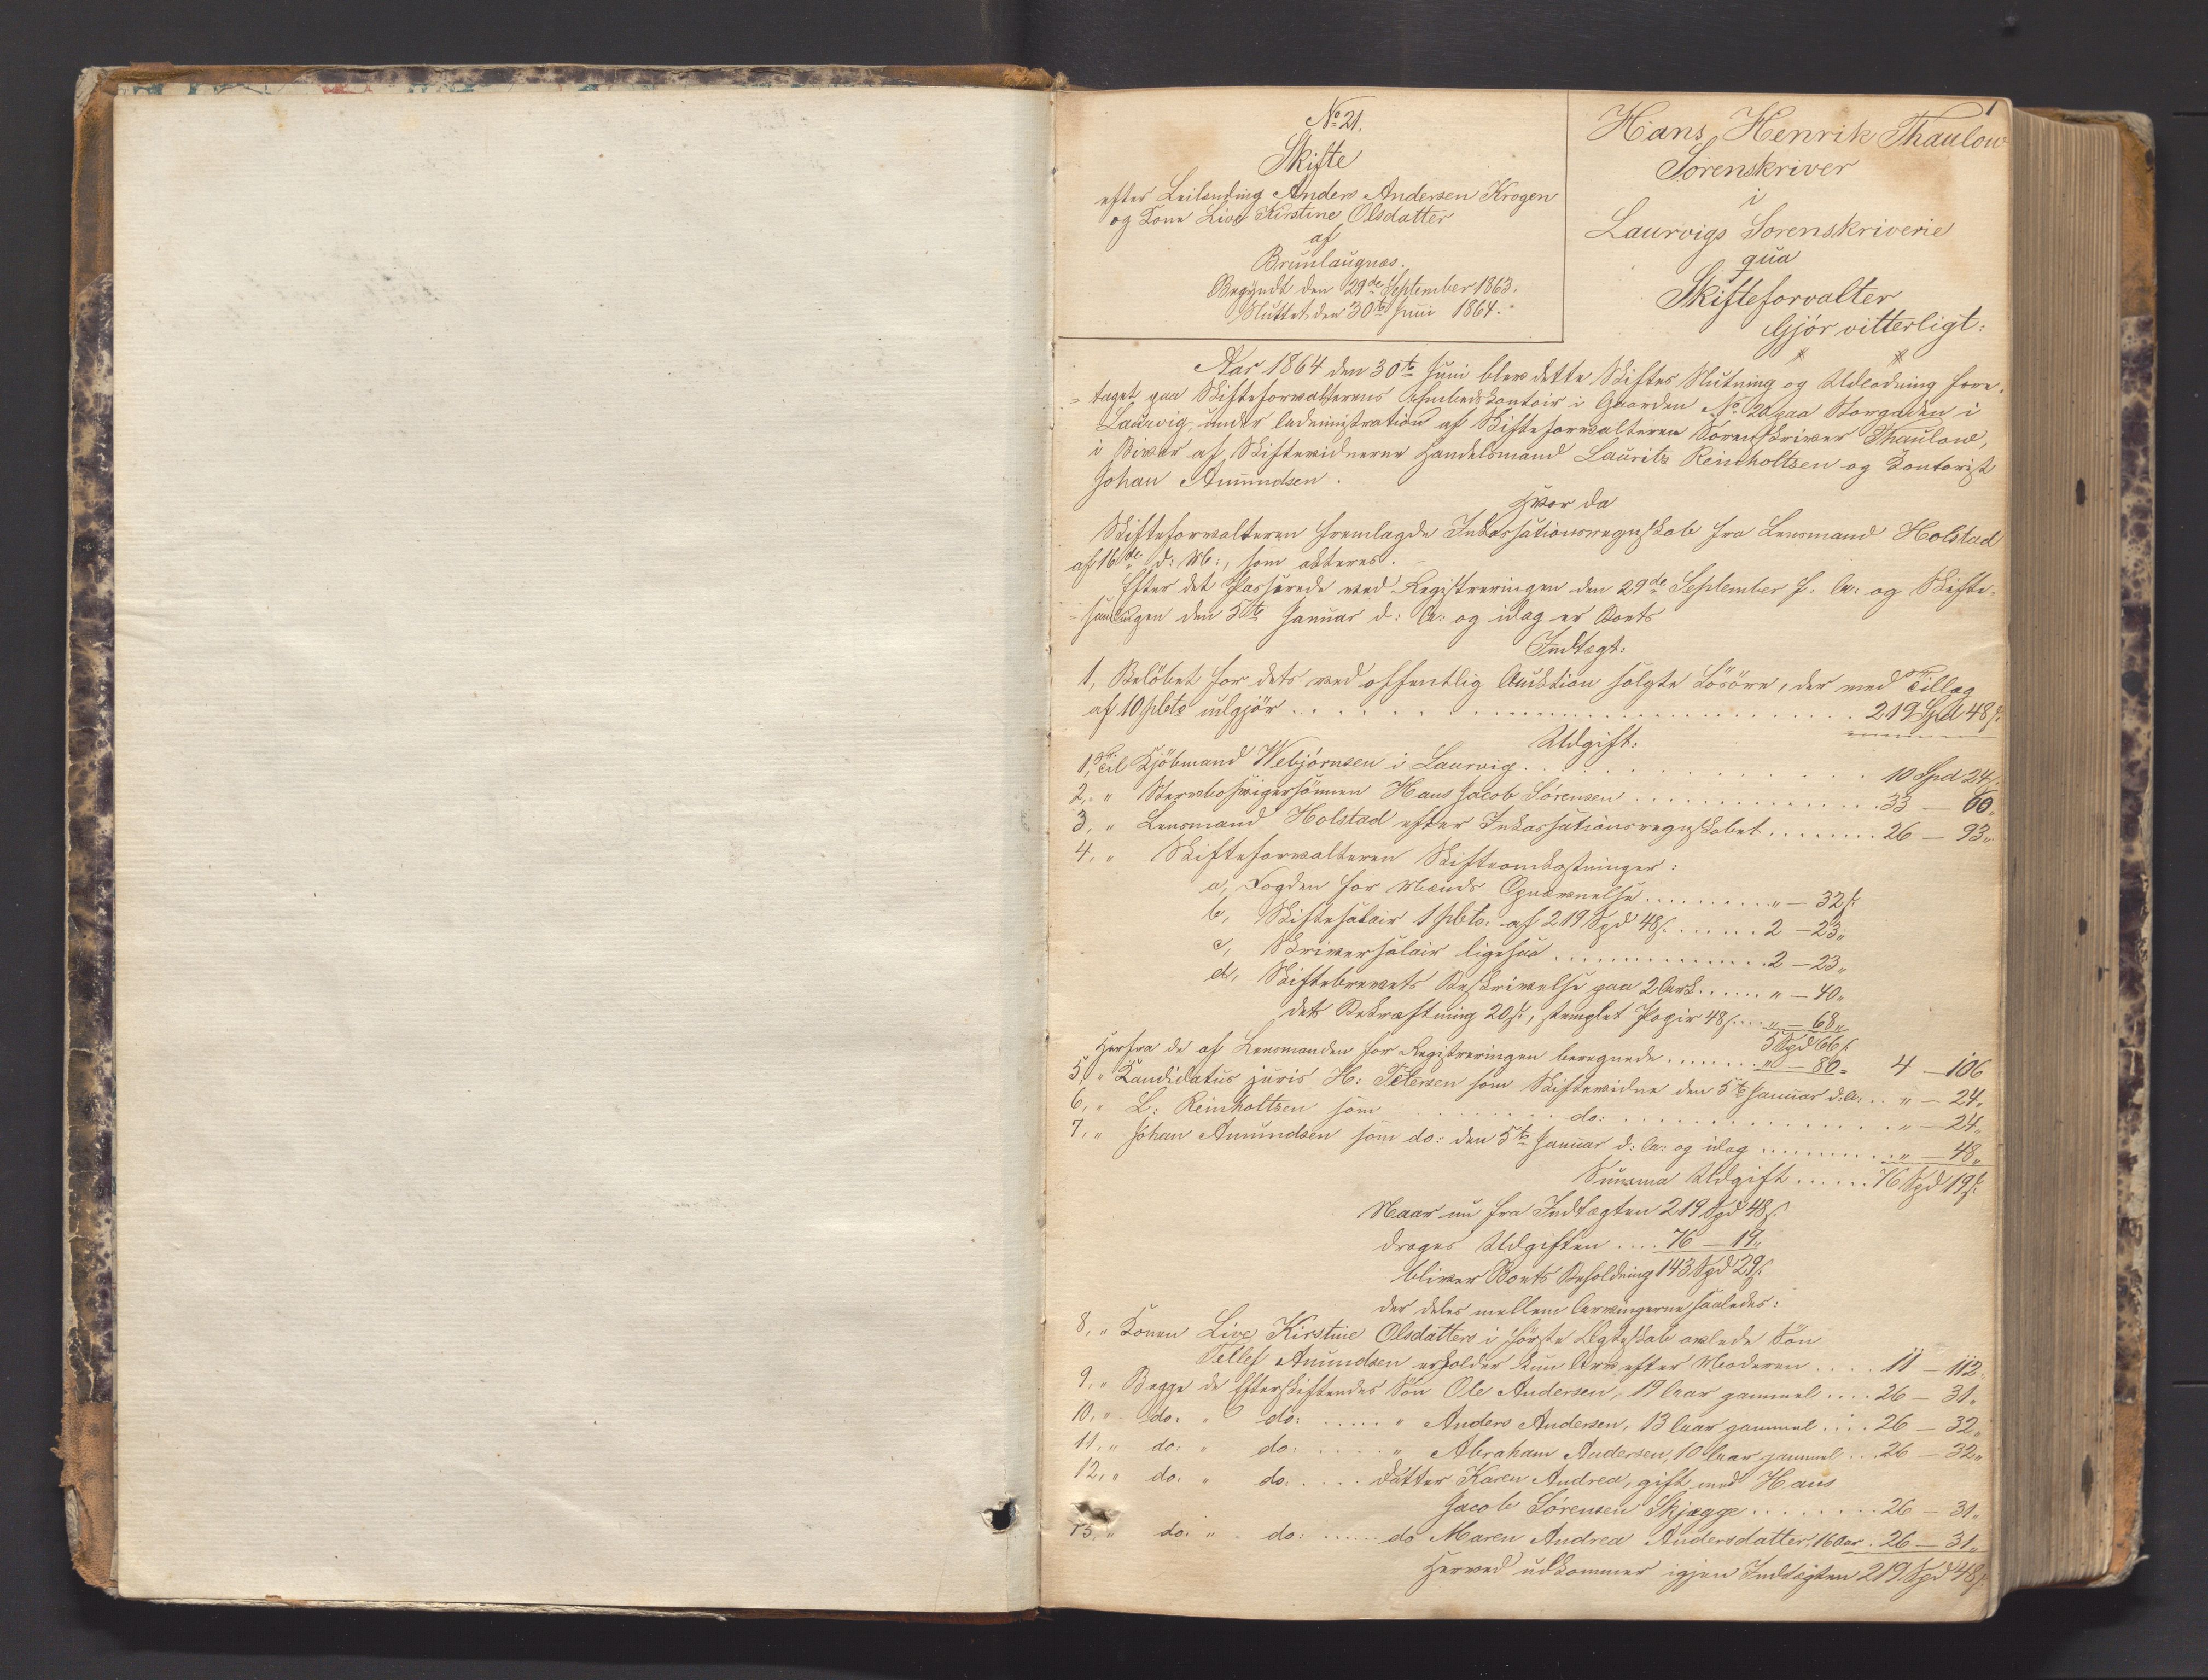 1
No 21.
Skifte
efter Leilending Anders Andersen Krogen
og Kone Live Kirstine Olsdatter
af
Brunlaugnæs.
Begyndt den 29de September 1863.
Sluttet den 30te Juni 1864.
Hans Henrik Thaulow
Sorenskriver
i
Laurvigs Sorenskriverie
qua
Skifteforvalter
Gjör vitterligt:
Aar 1864 den 30te Juni blev dette Skiftes Slutning og Udlodning fore-
=taget paa Skifteforvalterens Embedskontoir i Gaarden No 20 paa Storgaden i
Laurvig, under Administration af Skifteforvalteren Sorenskriver Thaulow,
i Bivær af Skiftevidnerne Handelsmand Laurits Reinholtsen og Kontorist
Johan Amundsen.
Hvor da
Skifteforvalteren fremlagde Inkassationsregnskab fra Lensmand Holstad
af 16de d: M:, som akteres.
Efter det Passerede ved Registreringen den 29de September f. A: og Skifte-
=samlingen den 5te Januar d: A: og idag er Boets
Indtægt:
1, Belöbet for dets ved offentlig Auktion solgte Lösöre, der med Tillæg
af 10 pCto udgjör . . . . . 219 Spd 48 s.
Udgift:
1, Til Kjöbmand Webjörnsen i Laurvig . . . . . 10 Spd 24 s.
2, " Stervbosvigersönnen Hans Jacob Sörensen . . . . . 33 — 60 "
3, " Lensmand Holstad efter Inkassationsregnskabet . . . . . 26 — 93 "
4, " Skifteforvalteren Skifteomkostninger:
a, Fogden for Mænds Opnævnelse . . . . . " — 32 s.
b, Skiftesalair 1 pCto. af 219 Spd 48 s. . . . . . 2 — 23 "
c, Skriversalair ligesaa . . . . . 2 — 23 "
d, Skiftebrevets Beskrivelse paa 2 Ark . . . . . " — 40 "
dets Bekræftning 20 s., stemplet Papir 48 s. . . . " — 68 "
5 Spd 66 s.
Herfra de af Lensmanden for Registreringen beregnede . . . . . " — 80 = 4 — 106
5, " Kandidatus juris H: Petersen som Skiftevidne den 5te Januar d: A: . . " — 24 "
6, " L: Reinholtsen som . . . . . do: . . . . . " — 24 "
7, " Johan Amundsen som do: den 5te Januar d: A: og idag . . . . . " — 48 "
Summa Udgift . . . . . 76 Spd 19 s.
Naar nu fra Indtægten 219 Spd 48 s.
drages Udgiften . . . . 76 — 19 "
bliver Boets Beholdning 143 Spd 29 s.
der deles mellem Arvingerne saaledes:
8, " Konen Live Kirstine Olsdatters i förste Ægteskab avlede Sön
Tellef Amundsen erholder kun Arv efter Moderen . . . . 11 — 112 "
9, " Begge de Efterskiftendes Sön Ole Andersen, 19 Aar gammel . . . . 26 — 31 "
10, " do. " do: . . . . . " Anders Andersen, 13 Aar gammel . . . . 26 — 32 "
11, " do. " do: . . . . . " Abraham Andersen, 10 Aar gammel . . 26 — 32 "
12, " do. " do. . . . . Datter Karen Andrea, gift med Hans
Jacob Sörensen Skjægge . . . . . 26 — 31 "
13, " do. " do: . . . . . do Maren Andrea Andersdatter, 16 Aar . 26 — 31 "
Herved udkommer igjen Indtægten 219 Spd 48 s.